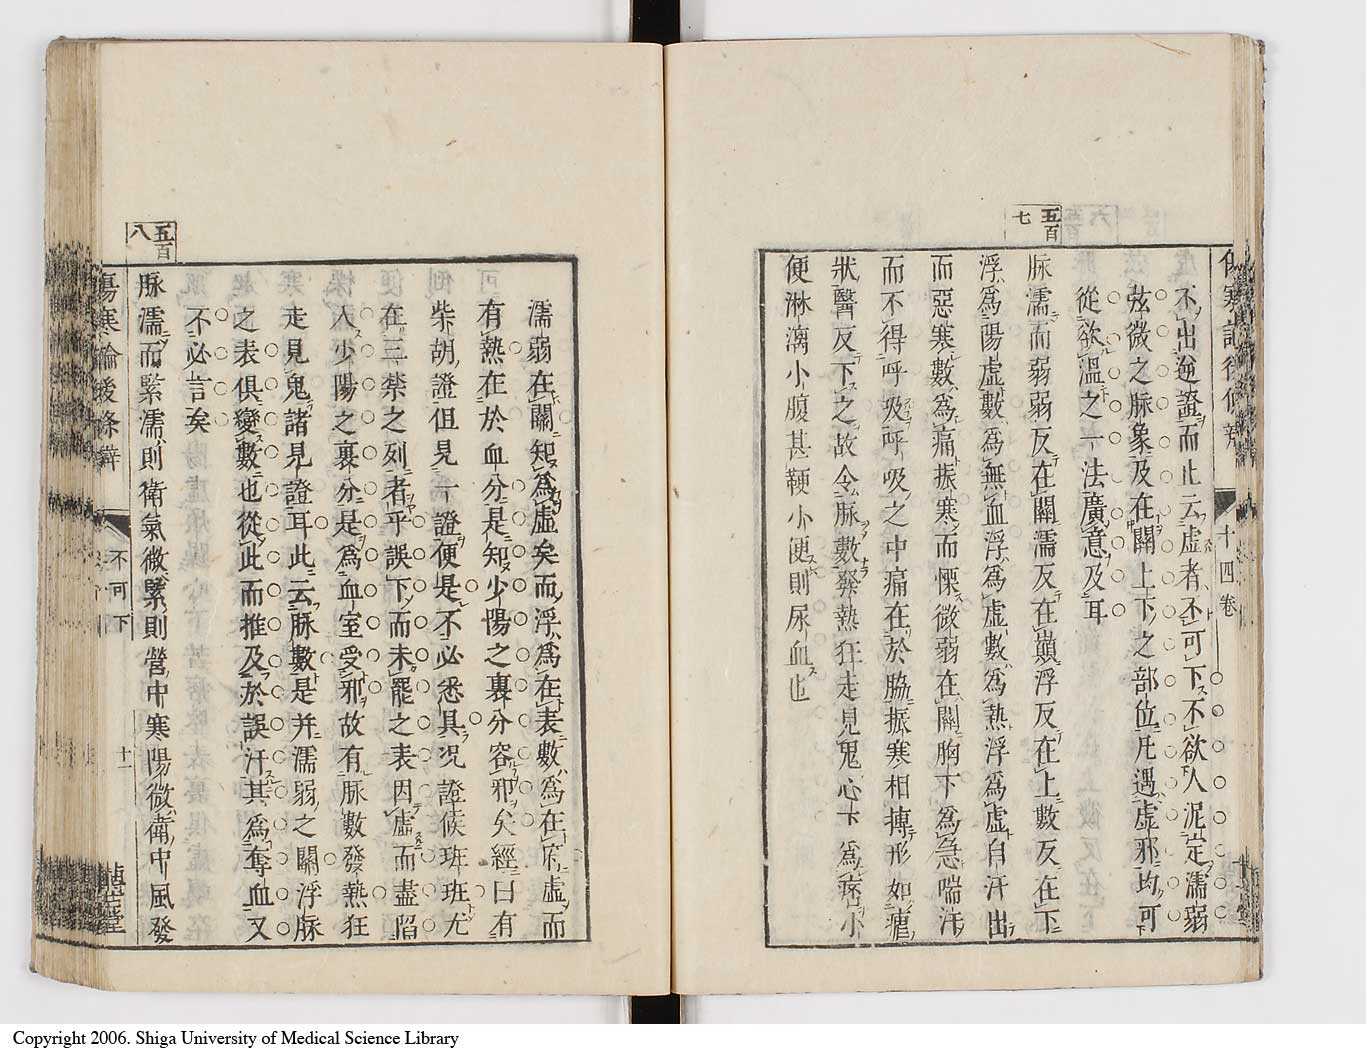 五百
七
不出逆證而止云虚者不可下不欲人泥定濡弱
弦微之脉象及在關上下之部位凡遇虚邪均可
從欲温之一法廣意及耳
脉濡而弱弱反在關濡反在巔浮反在上數反在下
浮爲陽虚數爲無血浮爲虚數爲熱浮爲虚自汗出
而惡寒數爲痛振寒而慄微弱在關胸下爲急喘汗
而不得呼吸呼吸之中痛在於脇振寒相搏形如瘧
狀醫反下之故令脉數發熱狂走見鬼心下爲痞小
便淋漓小腹甚鞕小便則尿血也
十四卷
五百
八
濡弱在關知爲虚矣而浮爲在表數爲在府虚而
有熱在於血分是知少陽之裏分容邪矣經曰有
柴胡證但見一證便是不必悉具况證候班班尤
在三禁之列者乎誤下而未罷之表因虚而盡陷
入少陽之裏分是爲血室受邪故有脉數發熱狂
走見鬼諸見證耳此云脉數是并濡弱之關浮脉
之表俱變數也從此而推及於誤汗其爲奪血又
不必言矣
脉濡而緊濡則衛氣微緊則營中寒陽微衛中風發
傷寒論後條辨
不可下
十一